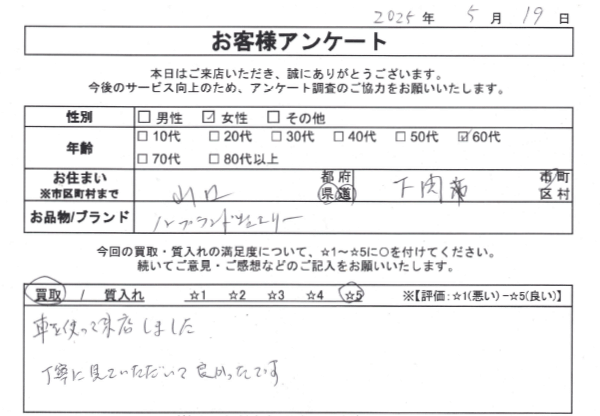 2025年 5月 19日
お客様アンケート
本日はご来店いただき、誠にありがとうございます。
今後のサービス向上のため、アンケート調査のご協力をお願いいたします。
性別 □男性 ☑女性 □その他
年齢 □10代 □20代 □30代 □40代 □50代 ☑60代
□70代 □80代以上
お住まい 山口 都府県道 下関市 市町区村
※市区町村まで
お品物/ブランド ノーブランドジュエリー
今回の買取・質入れの満足度について、☆1～☆5に○を付けてください。
続いてご意見・ご感想などのご記入をお願いいたします。
買取 / 質入れ ☆1 ☆2 ☆3 ☆4 ☆5 ※【評価:☆1(悪い)-☆5(良い)】
車を使って来店しました
丁寧に見ていただいて良かったです